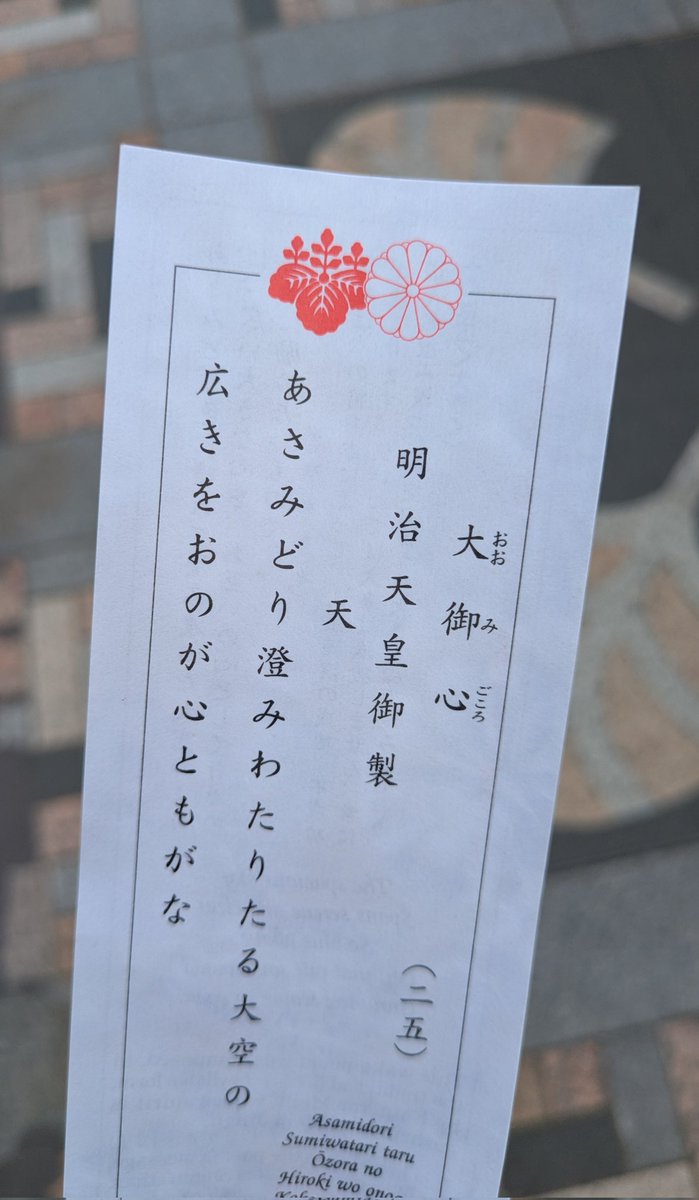 大御心
おおみごころ
明治天皇御製
(二五)
天
あさみどり澄みわたりたる大空の
広きをおのが心ともがな
Asamidori
Sumiwatari taru
Ōzora no
Hiroki wo onoga